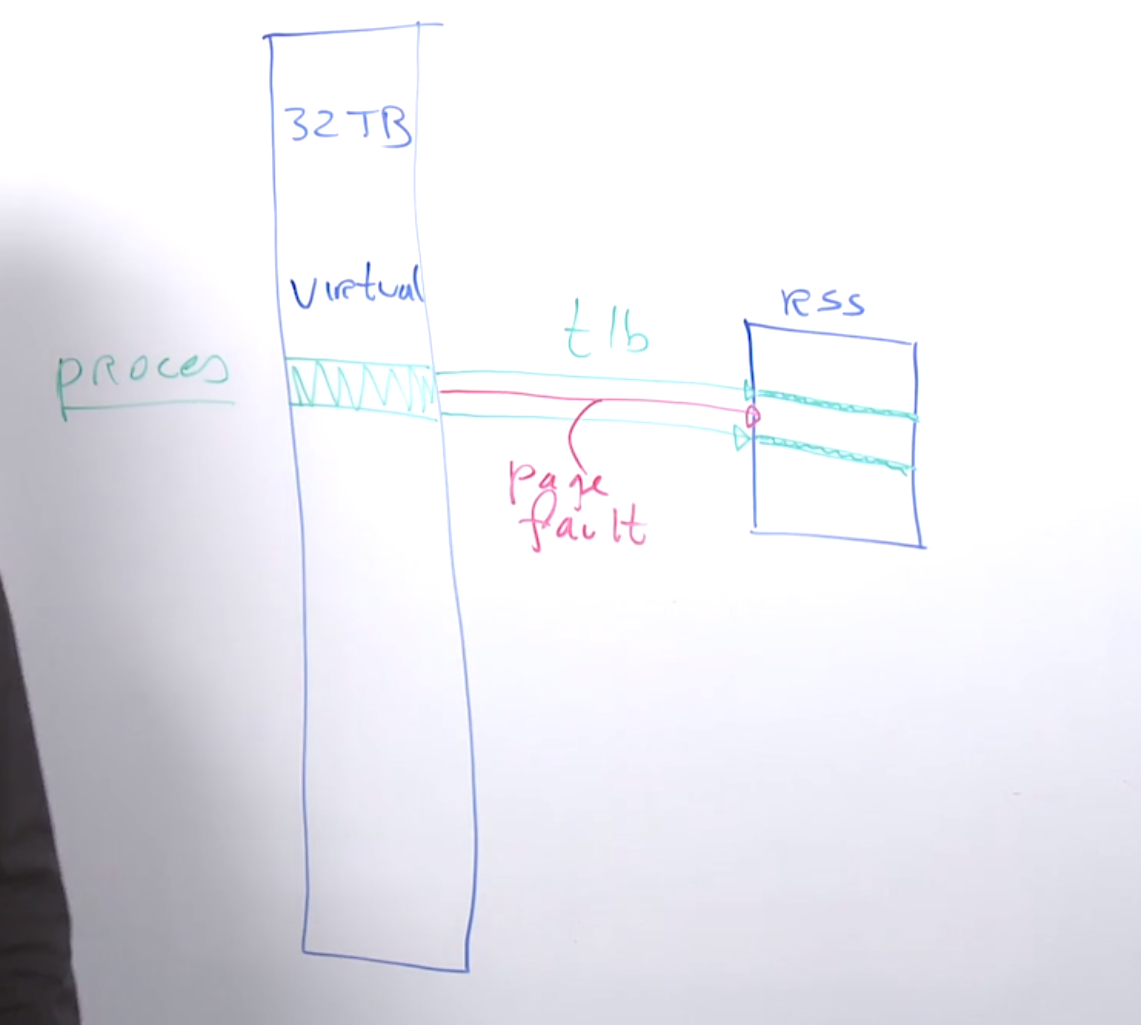 32TB
virtual
proces
tlb
rss
page
fault